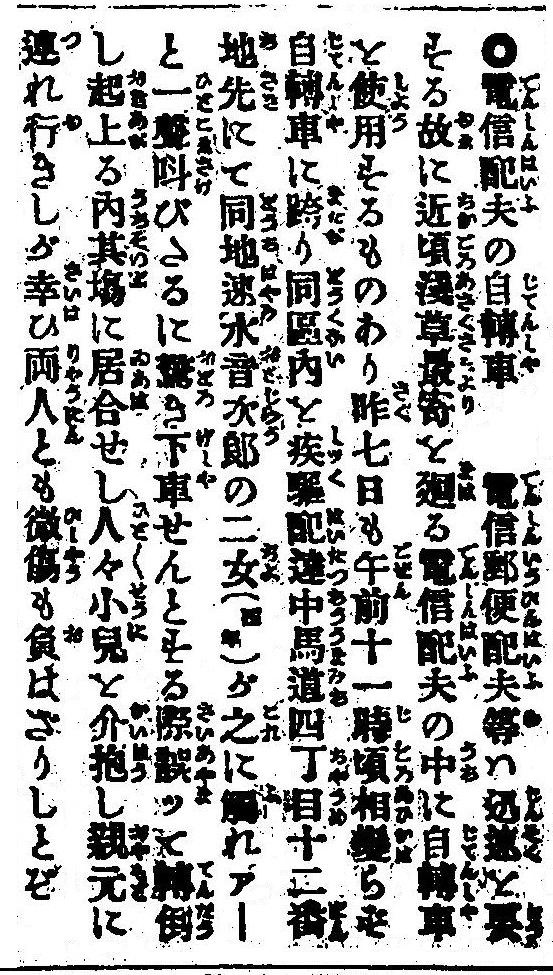 ●電信配夫の自轉車　電信郵便配夫等ハ迅速を要
する故に近頃淺草最寄を廻る電信配夫の中に自轉車
を使用するものあり昨七日も午前十一時頃相變らず
自轉車に跨り同區內を疾驅配達中馬道四丁目十二番
地先にて同地速水音次郎の二女（四年）が之に觸れアー
と一聲叫びたるに驚き下車せんとする際誤ッて轉倒
し起上る內其塲に居合せし人々小兒を介抱し親元に
連れ行きしが幸ひ両人とも微傷も負はざりしとぞ